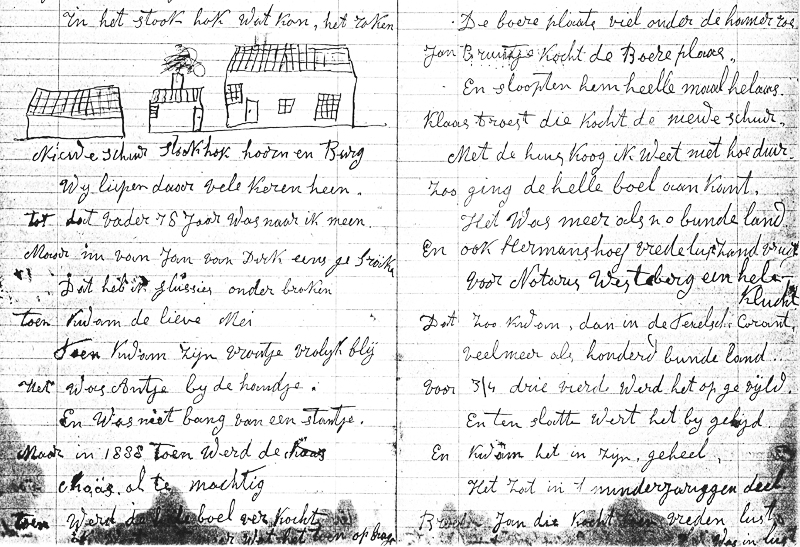 In het stook hok wat kon, het zoken
Nieuwe schuur stookhok hoorn en Burg
Wy liepen daar vele keren heen.
tot dat vader 78 Jaar was naar ik meen.
Maar im van Jan van Dirk eens ge
Dat heb ik slussies onder broken
toen kwam de lieve Mei
Toen kwam zijn vrouwtje vrolijk blij
Het was Antje by de handje.
En was niet bang van een standje.
Maar in 1888 toen werd de chaas
chaas. al te machtig
toen werd de hele boel verkocht
wat het toen op
De boere plaats viel onder de hamer
Jan Bruintje kocht de Boere plaas,
En sloopten hem heelle maal helaas.
Klaas troest die kocht de nieuwe schuur.
Met de huus Koog ik weet niet hoe duur.
zoo ging de helle boel aan kant.
Het was meer als no bunde land
En ook Hermanshoef vredelust hand
voor Notaris Westeberg een hele
klucht
Dat zoo kwam, dan in de Texelsche Corant,
veel meer als honderd bunde land...
voor 3/4 drie vierd werd het op ge vijld.
En ten slotte wert het by gelijd
En kwam het in zijn, geheel,
Het zat in 't minderjariggen deel
Broer Jan die kocht toen vreden lust
was in lust